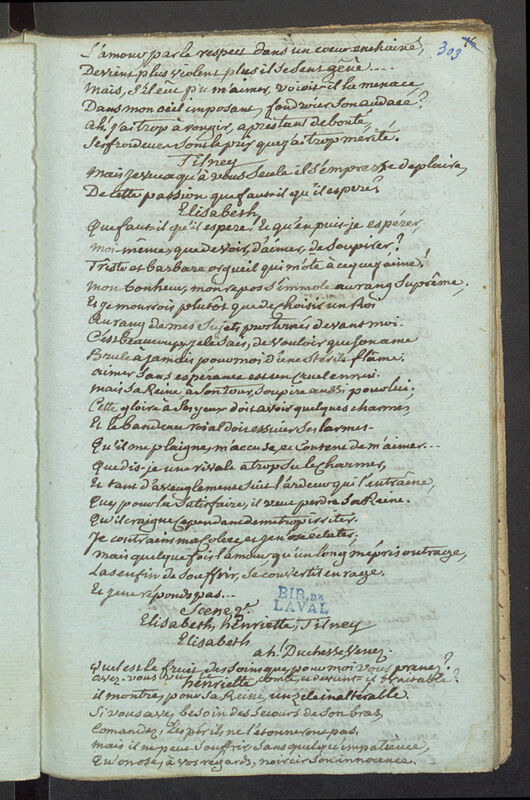 303
L'amour par le respect dans un coeur enchainé,
Devient plus violent plus il se sent gêné....
Mais, s'il eut pu m'aimer, voioit-il la menace,
Dans mon oeil imposant, foudroier son audace?
Ah! j'ai trop à rougir, après tant de bonté,
Ses froideurs sont le prix que j'ai trop mérité.
Tilney
Mais je vois qu'à vous seule il s'empresse de plaire,
De cette passion que faut-il qu'il espere,
Elisabeth
Que faut-il qu'il espere! Et qu'en puis-je espérer
moi-même, que de voir, d'aimer, de soupirer?
Triste et barbare orgueil qui m'ôte à ce que j'aime!
Mon bonheur, mon repos s'immole au rang suprême,
Et je mourrois plutôt que de choisir un Roi
Au rang de mes sujets prosternés devant moi.
C'est beaucoup, je le sais, de vouloir que son ame
Brule à jamais pour moi d'une stérile flâme.
aimer sans espérance est un cruel ennui.
mais sa Reine à son tour, soupire aussi pour lui,
Cette gloire à ses yeux doit avoir quelques charmes
Et le bandeau roial doit essuier ses larmes
Qu'il me plaigne, m'accuse, et content de m'aimer...
Que dis-je une rivale a trop su le charmer,
Et tant d'aveuglement suit l'ardeur qui l'entraîne,
Que, pour la satisfaire, il veut perdre sa Reine.
Qu'il craigne cependant de me trop irriter.
Je contrains ma colere, et je n'ose éclater,
Mais quelque fois l'amour qu'un long mépris outrage,
Las enfin de souffrir, se convertit en rage.
Et je ne réponds pas...
BIB. DE
LAVAL
Scene 2e
Elisabeth, henriette, Tilney
Elisabeth
ah! Duchesse, venez.
Quel est le fruit des soins que pour moi vous prenez?
avez-vous vu le comte, et devient-il traitable?
henriette
il montre, pour sa Reine, un zele inaltérable
Si vous avez besoin des secours de son bras,
Comandez, les périls ne l'étonneront pas.
mais il ne peut souffrir sans quelque impatience,
Qu'on ose, à vos regards, noircir son innocence.